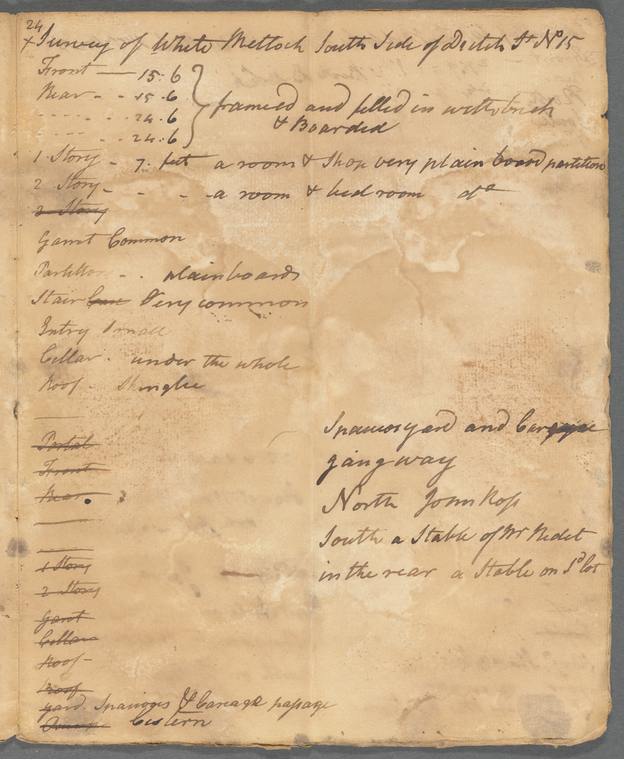 24
x Survey of White Metlock South Side of Dutch St No 15
Front — 15.6
Rear - - 15.6
- - - - - 24.6 framed and filled in with brick
- - - - - 24.6 & Boarded
1 Story - 7. feet a room & Shop very plain board partition
2 Story - - - - a room & bed room do
3 Story
Garrit Common
Partition - - . plain boards
Stair Case Very common
Entry Small
Cellar . under the whole
Roof - Shingle
Portal
Front
Rear
1 Story
2 Story
Garrit
Cellar
Roof -
Roof
yard. Spacious & Careage passage
Cistern
Spacious yard and
gangway
North John Ross
South a Stable of Mr
in the rear a Stable on Sd lot